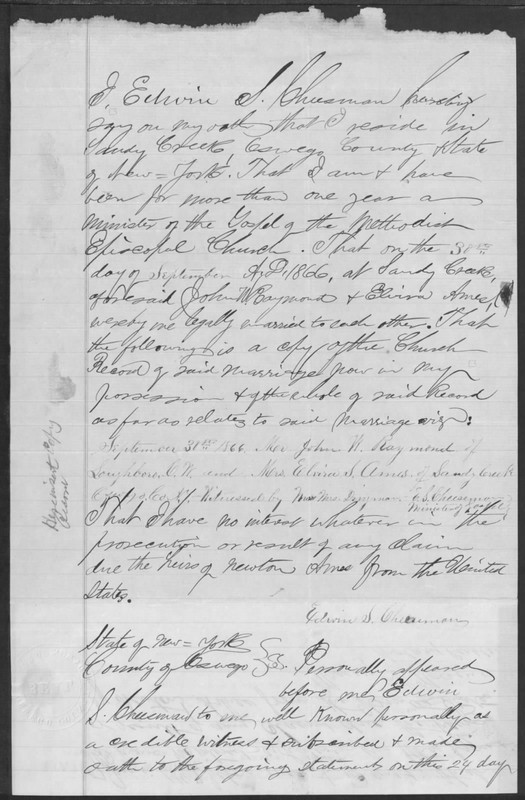 I, Edwin S. Cheesman hereby
say on my oath, that I reside in
Sandy Creek Oswego County & State
of New=York. That I am & have
been for more than one year a
minister of the Gospel of the Methodist
Episcopal Church. That on the 30th
day of September A,D, 1866, at Sandy Creek,
aforesaid John W Raymond & Elvira Ames,
were by me legally married to each other. That
the following is a copy of the Church
Record of said Marriage now in my
possession & of the whole of said Record
as far as relates to said Marriage viz:
September 30th 1866. Mr John W. Raymond of
Loughboro, C.W. and Mrs. Elvira S. Ames of Sandy Creek
Oswego Co. N.Y. Witnessed by Mrs E.S. Cheesman
Minister of
That I have no interest whatever in the
prosecution or result of any claim
due the heirs of Newton Ames from the United
States.
Edwin S. Cheesman
State of New=York
County of Oswego SS. Personally appeared
before me, Edwin
S. Cheesman to me well known personally as
a credible witness & subscribed & made
oath to the foregoing statement on this 24 day